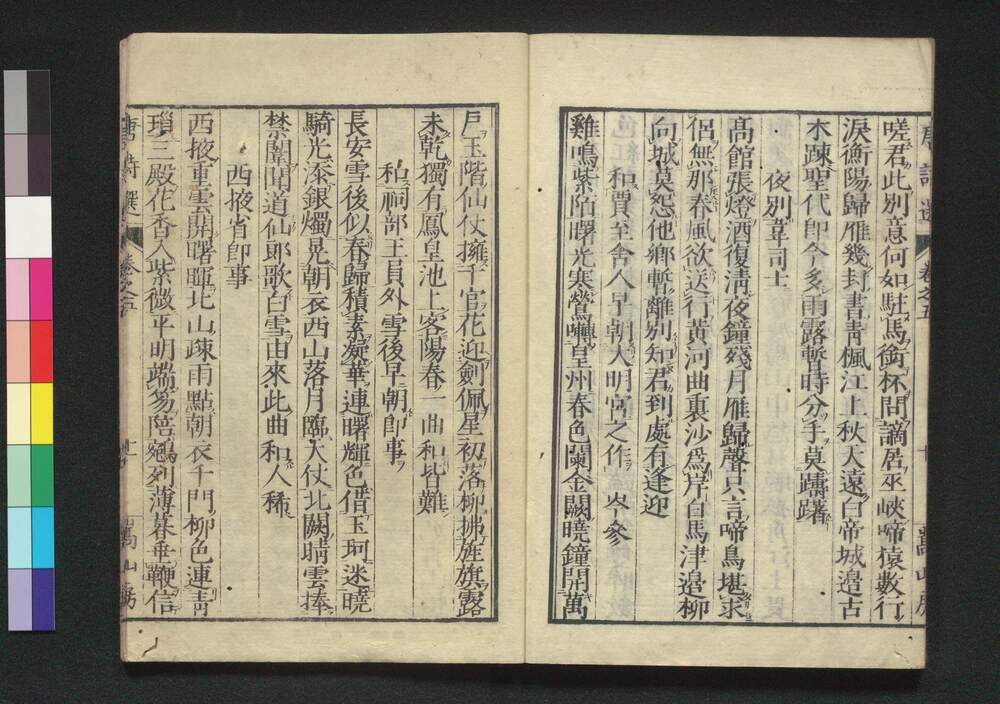 嗟君此別意何如駐馬銜杯問謫居巫峽啼猿數行
淚衡陽歸雁幾封書靑楓江上秋天遠白帝城邉古
木踈聖代即今多雨露暫時分手莫躊躇
夜別韋司士
高館張燈酒復淸夜鐘殘月雁歸聲只言啼鳥堪求
侶無那春風欲送行黃河曲裏沙爲岸白馬津邉柳
向城莫怨他鄉暫離別知君到處有逢迎
和賈至舍人早朝大明宮之作 岑參
雞鳴紫陌曙光寒鶯囀皇州春色闌金闕曉鐘開萬
戶玉階仙仗擁千官花迎劍佩星初落柳拂旌旗露
未乾獨有鳳皇池上客陽春一曲和皆難
和祠部王員外雪後早朝即事
長安雪後似春歸積素凝華連曙輝色借玉珂迷曉
騎光添銀燭晃朝衣西山落月臨天仗北闕晴雲捧
禁闈聞道仙郎歌白雪由來此曲和人稀
西掖省即事
西掖重雲開曙暉北山疎雨點朝衣千門柳色連靑
瑣三殿花香入紫微平明端笏陪鵷列薄暮垂鞭信
唐詩選 卷之五